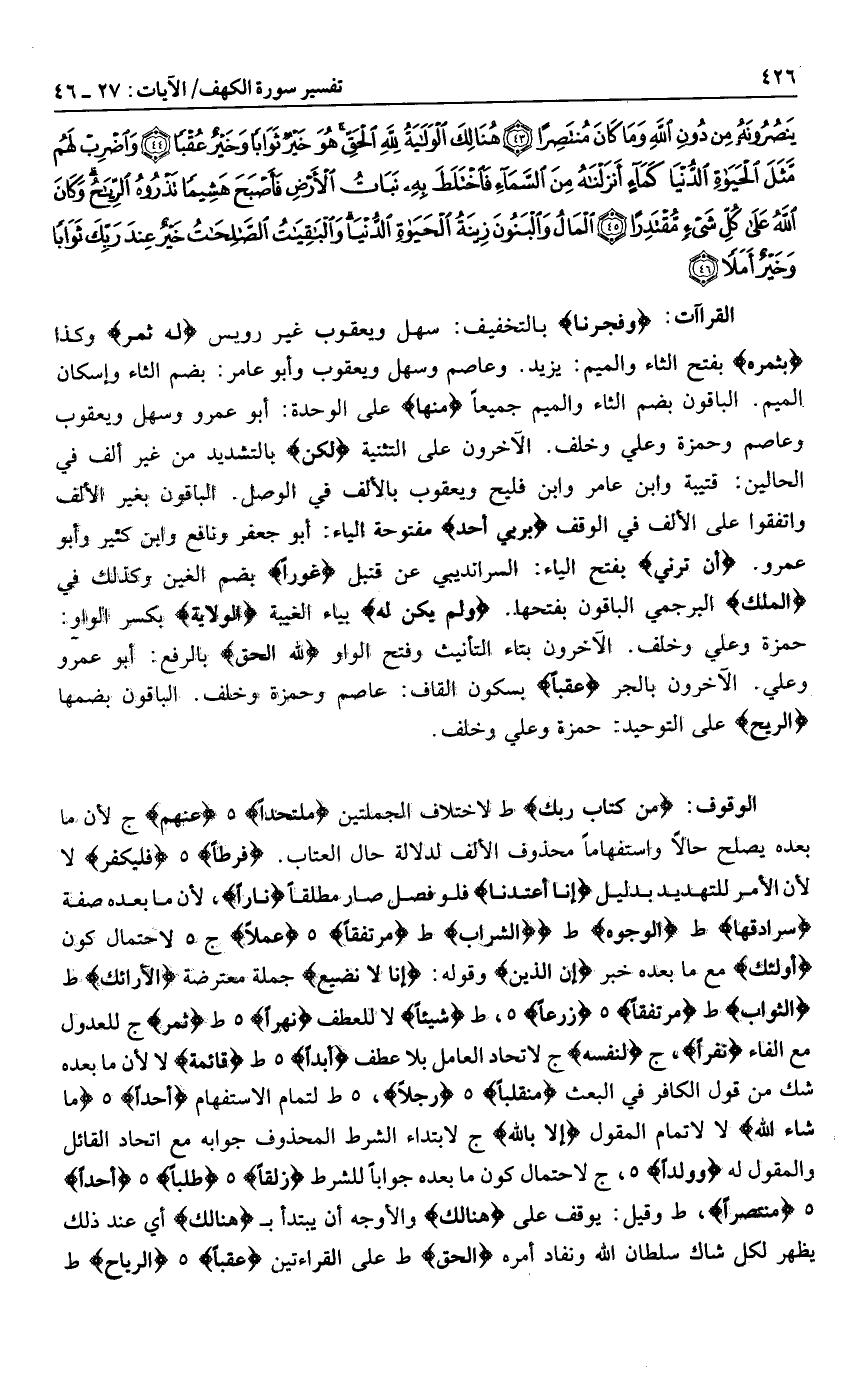 ٤٢٦
تفسير سورة الكهف/ الآيات: ٢٧ ـ ٤٦
يَنصُرُونَهُ مِن دُونِ اللَّهِ وَمَا كَانَ مُنتَصِرًا ﴿٤٣﴾ هُنَالِكَ الْوَلَايَةُ لِلَّهِ الْحَقِّ هُوَ خَيْرٌ ثَوَابًا وَخَيْرٌ عُقْبًا ﴿٤٤﴾ وَاضْرِبْ لَهُم
مَّثَلَ الْحَيَوٰةِ الدُّنْيَا كَمَآءٍ أَنزَلْنَاهُ مِنَ السَّمَآءِ فَاخْتَلَطَ بِهِۦ نَبَاتُ الْأَرْضِ فَأَصْبَحَ هَشِيمًا نَذْرُوهُ الرِّيَاحُ وَكَانَ
اللَّهُ عَلَىٰ كُلِّ شَىْءٍ مُّقْتَدِرًا ﴿٤٥﴾ الْمَالُ وَالْبَنُونَ زِينَةُ الْحَيَوٰةِ الدُّنْيَا وَالْبَاقِيَاتُ الصَّالِحَاتُ خَيْرٌ عِندَ رَبِّكَ ثَوَابًا
وَخَيْرٌ أَمَلًا ﴿٤٦﴾
القراآت: ﴿وفجرنا﴾ بالتخفيف: سهل ويعقوب غير رويس ﴿له ثمر﴾ وكذا
﴿بثمره﴾ بفتح الثاء والميم: يزيد. وعاصم وسهل ويعقوب وأبو عامر: بضم الثاء وإسكان
الميم. الباقون بضم الثاء والميم جميعاً ﴿منها﴾ على الوحدة: أبو عمرو وسهل ويعقوب
وعاصم وحمزة وعلي وخلف. الآخرون على التثنية ﴿لكن﴾ بالتشديد من غير ألف في
الحالين: قتيبة وابن عامر وابن فليح ويعقوب بالألف في الوصل. الباقون بغير الألف
واتفقوا على الألف في الوقف ﴿بربي أحد﴾ مفتوحة الياء: أبو جعفر ونافع وابن كثير وأبو
عمرو. ﴿أن ترني﴾ بفتح الياء: السرانديبي عن قنبل ﴿غوراً﴾ بضم الغين وكذلك في
﴿الملك﴾ البرجمي الباقون بفتحها. ﴿ولم يكن له﴾ بياء الغيبة ﴿الولاية﴾ بكسر الواو:
حمزة وعلي وخلف. الآخرون بتاء التأنيث وفتح الواو ﴿لله الحق﴾ بالرفع: أبو عمرو
وعلي. الآخرون بالجر ﴿عقباً﴾ بسكون القاف: عاصم وحمزة وخلف. الباقون بضمها
﴿الريح﴾ على التوحيد: حمزة وعلي وخلف.
الوقوف: ﴿من كتاب ربك﴾ ط لاختلاف الجملتين ﴿ملتحداً﴾ ٥ ﴿عنهم﴾ ج لأن ما
بعده يصلح حالاً واستفهاماً محذوف الألف لدلالة حال العتاب. ﴿فرطاً﴾ ٥ ﴿فليكفر﴾ لا
لأن الأمر للتهديد بدليل ﴿إنا أعتدنا﴾ فلو فصل صار مطلقاً ﴿ناراً﴾، لأن ما بعده صفة
﴿سرادقها﴾ ط ﴿الوجوه﴾ ط ﴿﴿الشراب﴾ ط ﴿مرتفقاً﴾ ٥ ﴿عملاً﴾ ج ٥ لاحتمال كون
﴿أولئك﴾ مع ما بعده خبر ﴿إن الذين﴾ وقوله: ﴿إنا لا نضيع﴾ جملة معترضة ﴿الأرائك﴾ ط
﴿الثواب﴾ ط ﴿مرتفقاً﴾ ٥ ﴿زرعاً﴾ ٥، ط ﴿شيئاً﴾ لا للعطف ﴿نهراً﴾ ٥ ط ﴿ثمر﴾ ج للعدول
مع الفاء ﴿نفراً﴾، ج ﴿لنفسه﴾ ج لاتحاد العامل بلا عطف ﴿أبداً﴾ ٥ ط ﴿قائمة﴾ لا لأن ما بعده
شك من قول الكافر في البعث ﴿منقلباً﴾ ٥ ﴿رجلاً﴾، ٥ ط لتمام الاستفهام ﴿أحداً﴾ ٥ ﴿ما
شاء الله﴾ لا لاتمام المقول ﴿إلا بالله﴾ ج لابتداء الشرط المحذوف جوابه مع اتحاد القائل
والمقول له ﴿وولداً﴾ ٥، ج لاحتمال كون ما بعده جواباً للشرط ﴿زلقاً﴾ ٥ ﴿طلباً﴾ ٥ ﴿أحداً﴾
٥ ﴿منتصراً﴾، ط وقيل: يوقف على ﴿هنالك﴾ والأوجه أن يبتدأ بـ ﴿هنالك﴾ أي عند ذلك
يظهر لكل شاك سلطان الله ونفاد أمره ﴿الحق﴾ ط على القراءتين ﴿عقباً﴾ ٥ ﴿الرياح﴾ ط